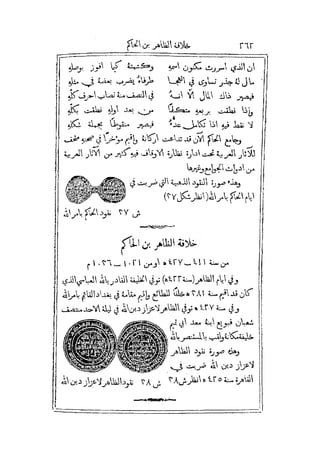 ٢٦٢ خلافة الظاهر بن الحاكم
ان الذي اسررت مكنون اسمه وكتمته كيما افوز بوصله
مالٌ له جذر تساوى في الهجا طرفاه يضرب بعضه في مثله
فيصير ذاك المال الا انه في النصف منه تصاب احرف كله
واذا نطقت بربعه متكلماً من بعد اوله نطقت بكله
لا نقط فيه اذا تكامل عده فيصير منقوطاً بجملة شكله
وجامع الحاكم الآن قد تداعت اركانه واقيم مؤخراً في صحنه متحف
للآثار العربية تحت ادارة نظارة الاوقاف فيه كثير من الآثار العربية
من ادوات الجوامع وغيرها
وهذه صورة النقود الذهبية التي ضربت في
ايام الحاكم بامر الله (انظر شكل ٢٧)
ش ٢٧ نقود الحاكم بامر الله
خلافة الظاهر بن الحاكم
من سنة ٤١١ – ٤٢٧ ه او من ١٠٢١ – ١٠٣٦ م
وفي ايام الظاهر (سنة ٤٢٢ه) توفي الخليفة القادر بالله العباسي الذي
كان قد اقيم سنة ٣٨١ ه خلفاً للطائع واقيم مقامه في بغداد القائم بامر الله
وفي سنة ٤٢٧ ه توفي الظاهر لاعزاز دين الله في ليلة الاحد منتصف
شعبان فبويع ابنه معد ابي تميم
خليفة مكانه ولقب بالمستنصر بالله
وهذه صورة نقود الظاهر
لاعزاز دين الله ضربت في
القاهرة سنة ٤٢٥ ه انظر ش ٢٨
ش ٢٨ نقود الظاهر لاعزاز دين الله